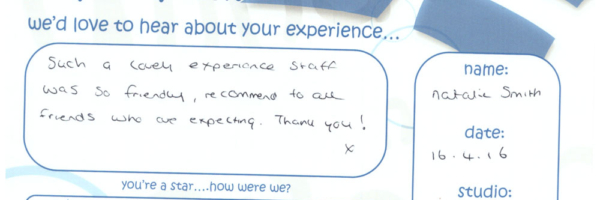 we'd love to hear about your experience...
Such a lovely experience staff
was so friendly, recommend to all
friends who are expecting. Thank you!
x
name:
Natalie Smith
date:
16.4.16
studio:
you're a star....how were we?